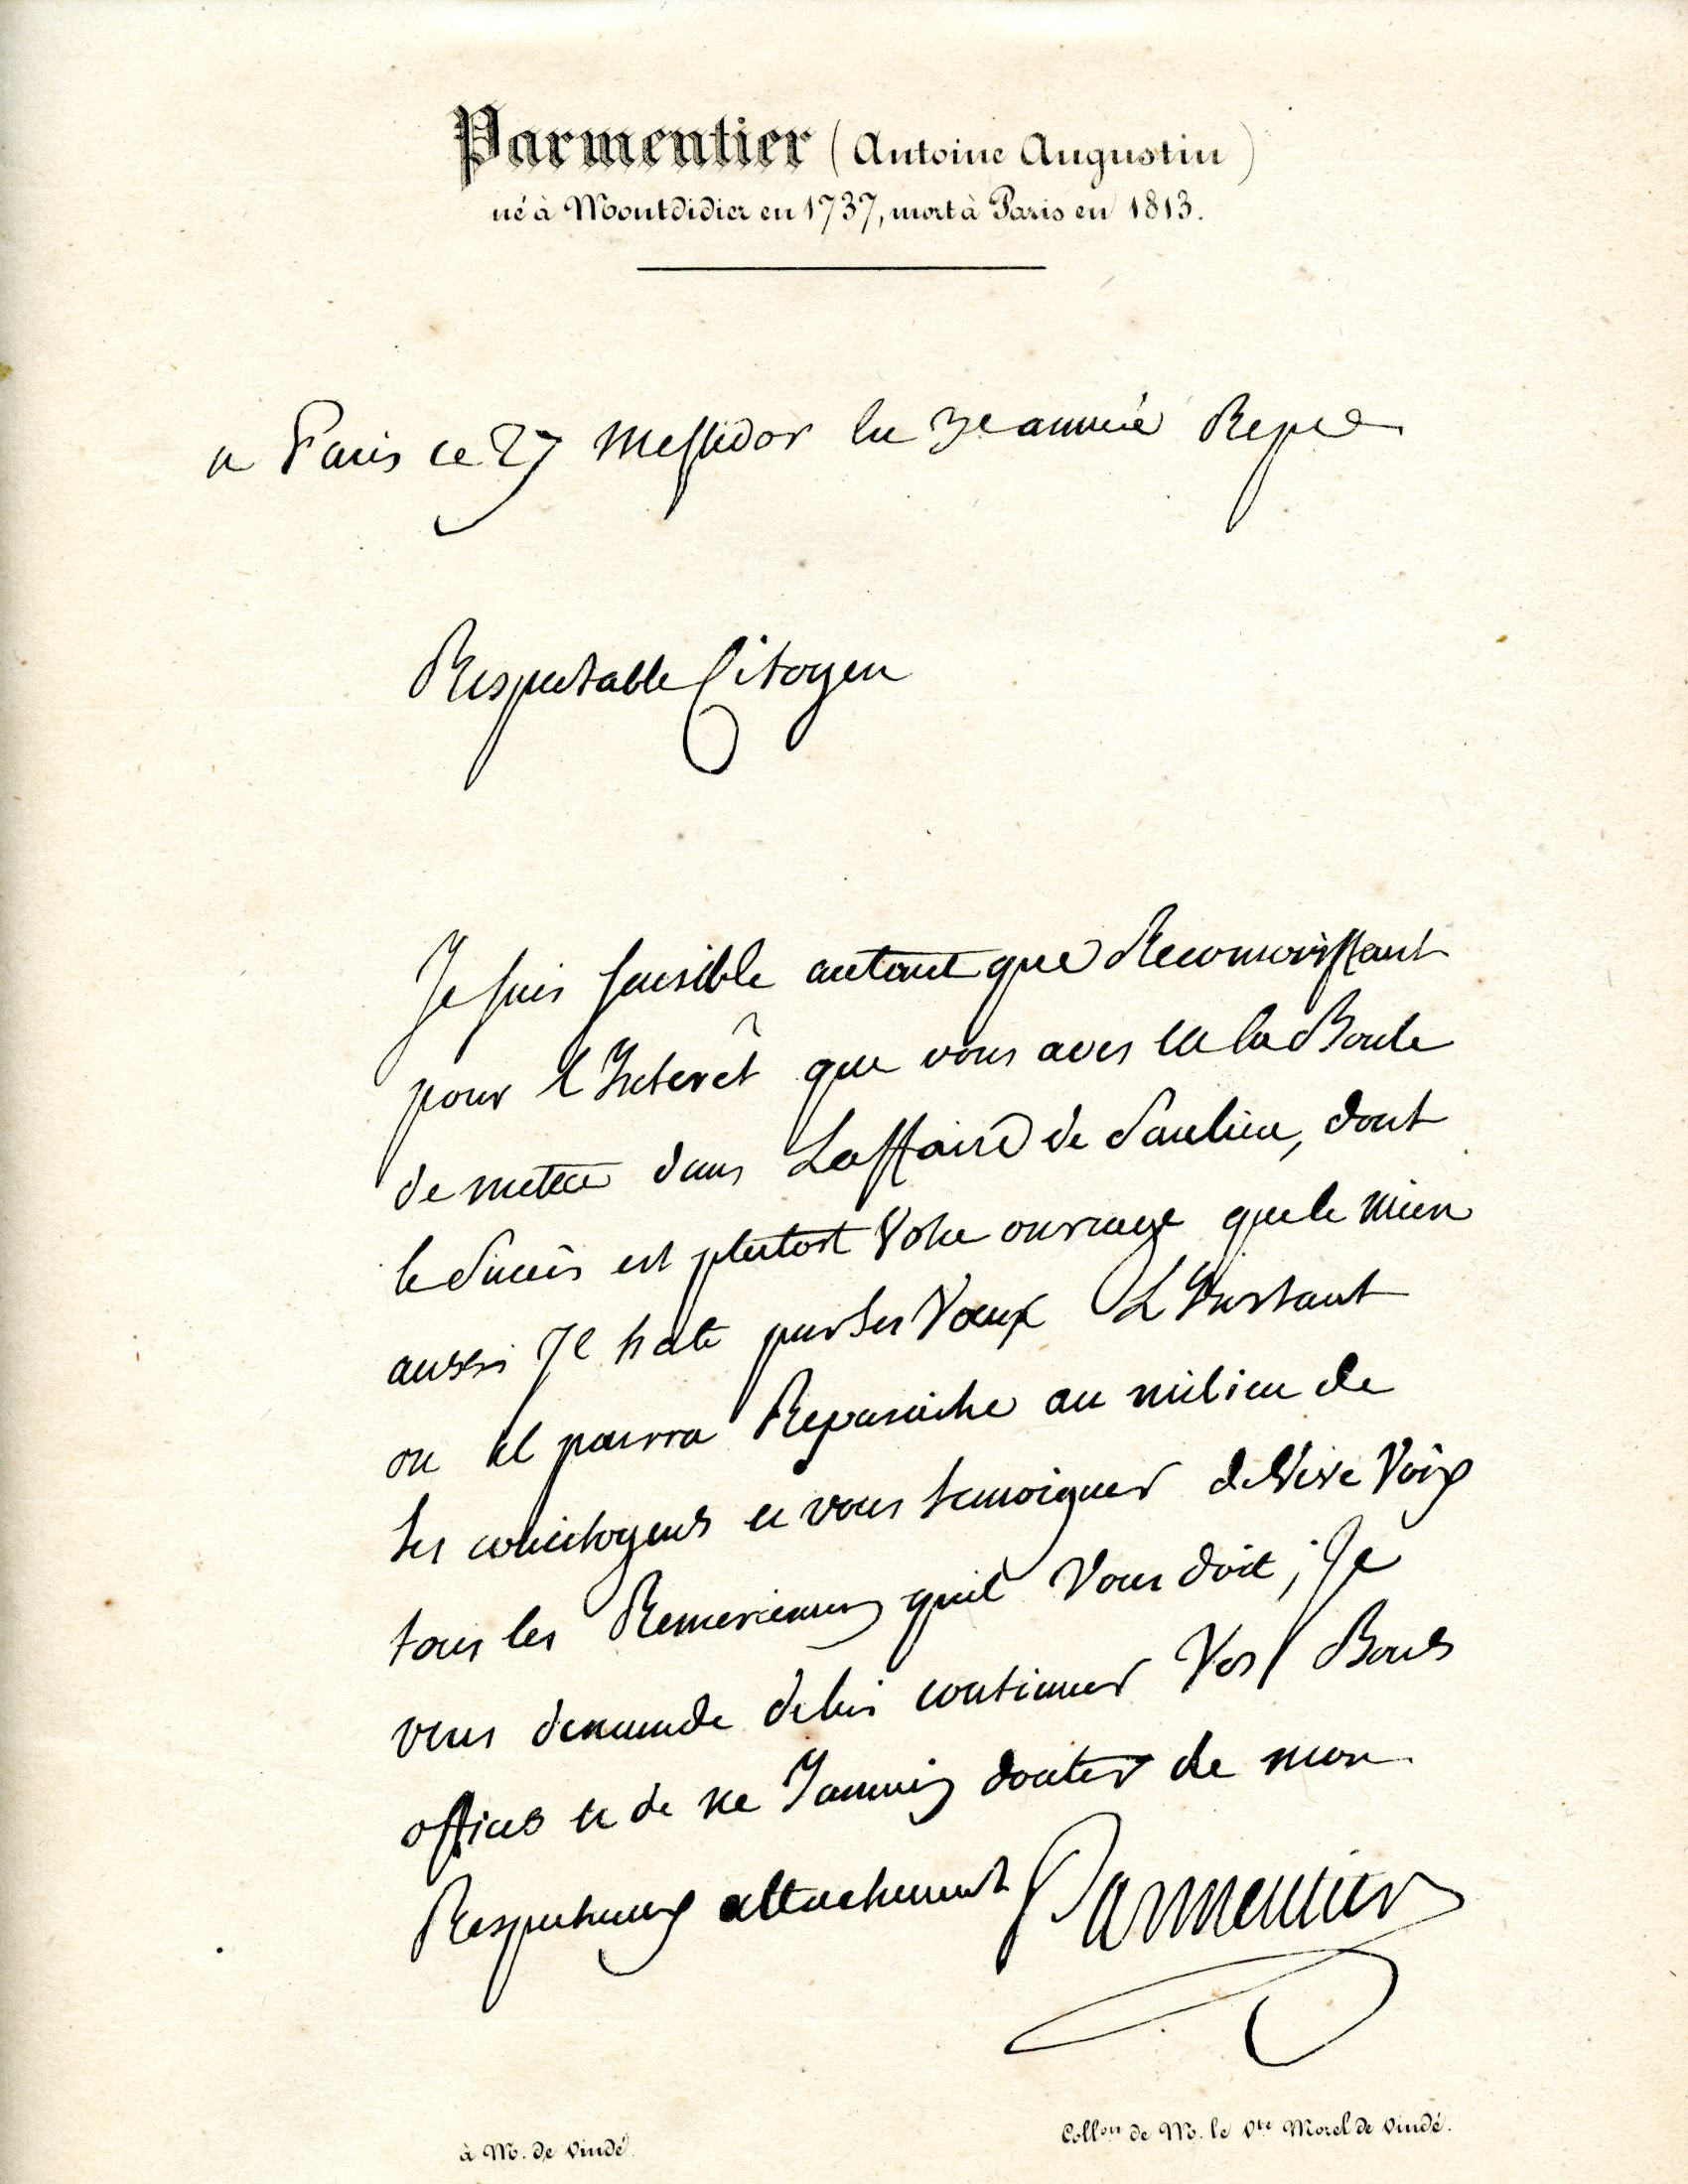 Parmentier (Antoine Augustin)
né à Montdidier en 1737, mort à Paris en 1813.
a Paris ce 27 Messidor la 3e année Repe
Respectable Citoyen
Je suis sensible autant que Reconnoissant
pour l'Interêt que vous aves eu la Bonté
de mettre dans Laffaire de Saulieu, dont
le Succès est plutost Votre ouvrage que le mien
aussi Il hate par ses Vœux L'Instant
ou il pourra Reparoitre au milieu de
ses concitoyens et vous temoigner de Vive Voix
tous les Remerciemens quil Vous doit; Je
vous demande de lui continuer Vos Bons
offices et de ne Jamais douter de mon
Respectueux attachement Parmentier
à M. de Vindé
Collon de M. le Vte Morel de Vindé.